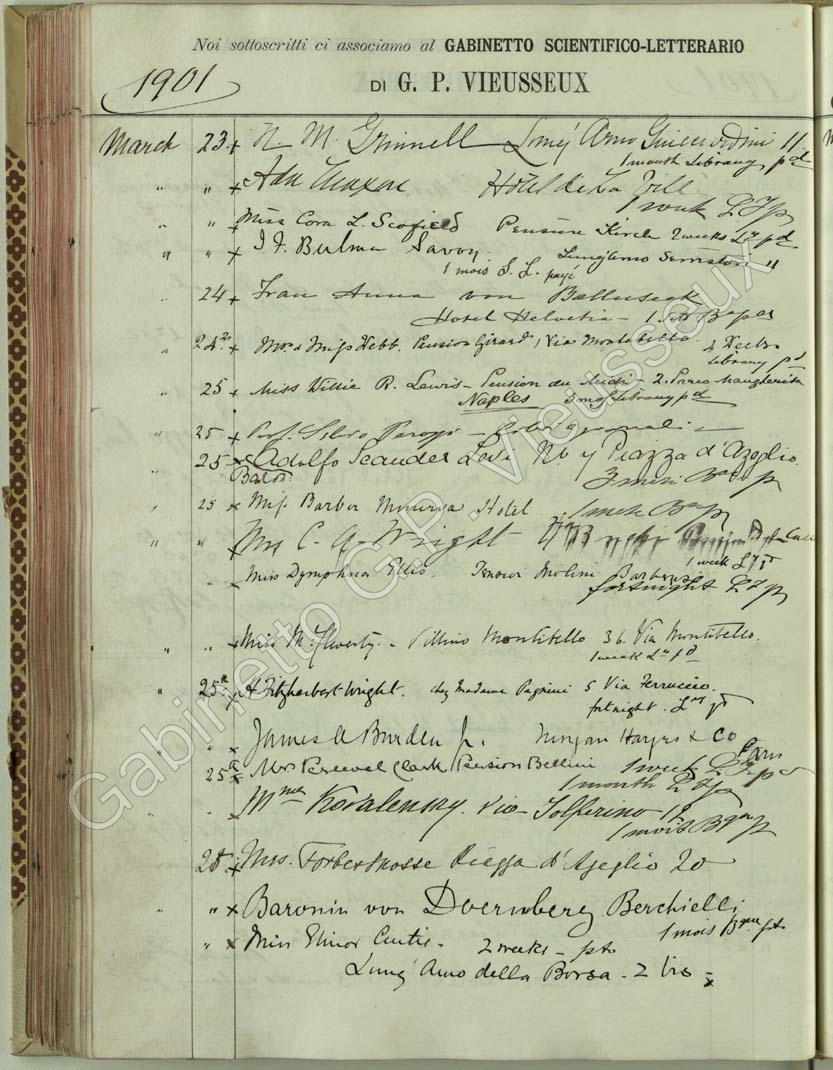 Noi sottoscritti ci associamo al GABINETTO SCIENTIFICO-LETTERARIO
1901
DI G. P. VIEUSSEUX
March 23 x N M. Grinnell Lung' Arno Guicciardini 11
1 month Library pd
" " x Ada Hôtel de La Ville
1 week Ly p
" " x Miss Cora L. Scofield Pension 2 weeks Ly pd
" " x J. F. Bulmer Savoy. Lung'arno Serristori 11
1 mois S. L. payé
" 24 x Frau Anna von Balluseck
Hotel Helvetia - 1
" 24 x Mrs & Miss Webb. Pension Girard, Via Montebello
Library pd
" 25 x Miss Willie R. Lewis - Pension du Midi - 2. Parco Margherita
Naples 3 mos Library pd
25 x Prof. Silvio Perozzi -
" 25 x Adolfo Scander Levi No 7 Piazza d'Azeglio.
Baron 3 mesi p
" 25 x Miss Barber Minerva Hotel 1 week p
" " x Mrs C. A. Wright
1 week Ly pd
" Miss Dymphna Ellis. Molini
fortnight Ly p
" " x Miss - Villino Montebello 36. Via Montebello.
1 week Ly pd
" 25 x H Fitzherbert Wright. chez Madame Pagnini 5 Via Ferruccio.
fortnight. Ly pd
" x James A Burden Jr. Morgan Harjes & Co
Paris
1 week Ly pd
25 x Mrs Perceval Clark Pension Bellini
1 month Ly p
" x Mme Kovalensky. Via Solferino 12
1 mois p
28 x Mrs. Forbes Mosse Piazza d'Azeglio 20
" " x Baronin von Doernberg Berchielli
1 mois pd
" x Miss Elinor Curtis. 2 weeks - pd
Lung' Arno della Borsa - 2 bis - x
Gabinetto G.P. Vieusseux